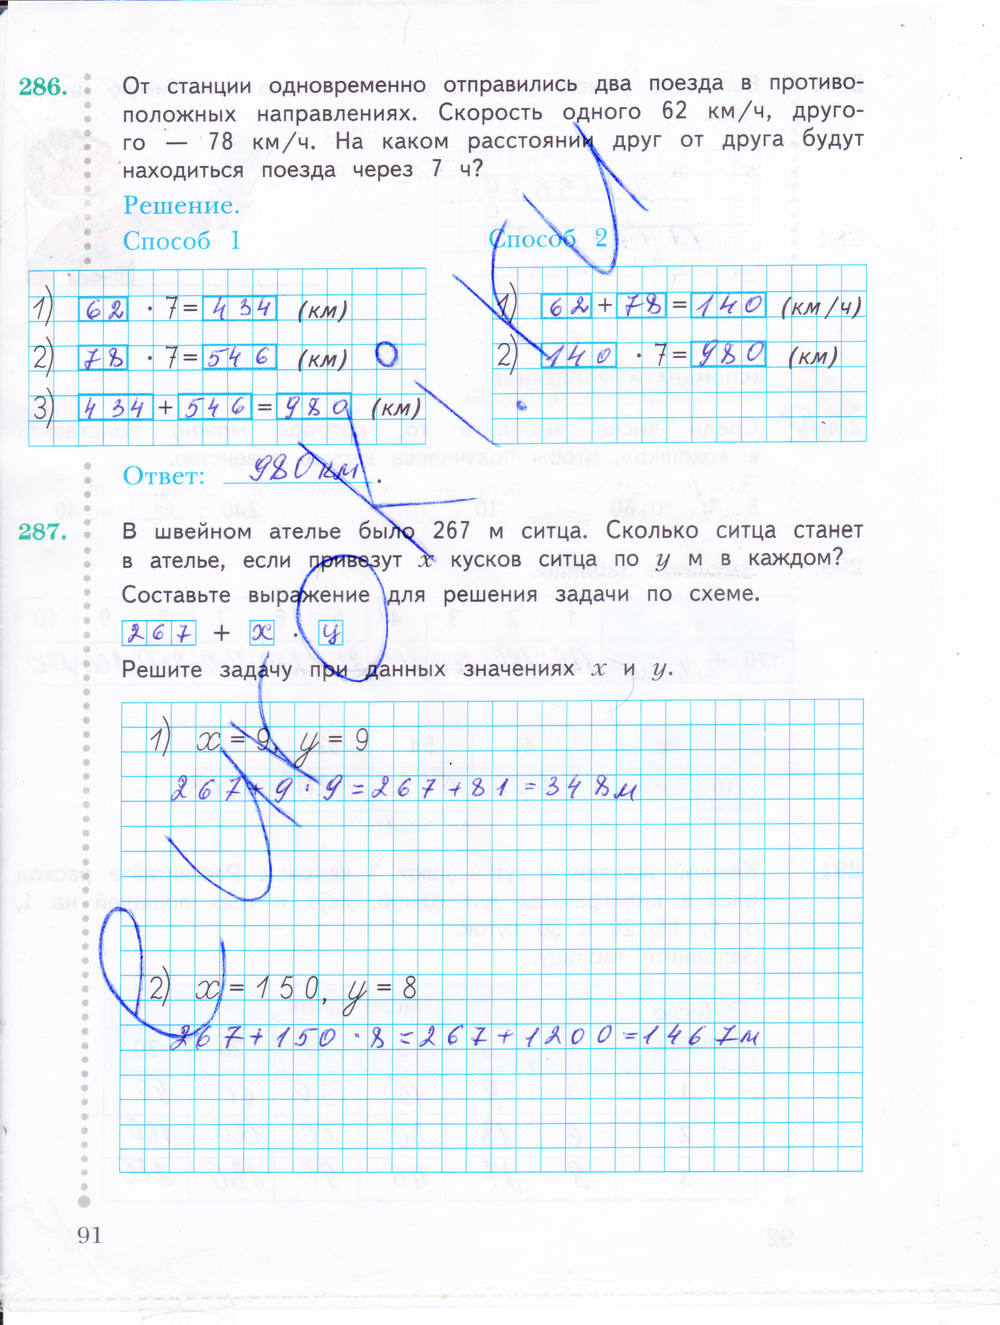 286. От станции одновременно отправились два поезда в противо-
положных направлениях. Скорость одного 62 км/ч, друго-
го — 78 км/ч. На каком расстоянии друг от друга будут
находиться поезда через 7 ч?
Решение.
Способ 1
1) 62 · 7 = 434 (км)
2) 78 · 7 = 546 (км)
3) 434 + 546 = 980 (км)
Способ 2
1) 62 + 78 = 140 (км/ч)
2) 140 · 7 = 980 (км)
Ответ: 980 км.
287. В швейном ателье было 267 м ситца. Сколько ситца станет
в ателье, если привезут x кусков ситца по y м в каждом?
Составьте выражение для решения задачи по схеме.
267 + x · y
Решите задачу при данных значениях x и y.
1) x = 9, y = 9
267 + 9 · 9 = 267 + 81 = 348 м
2) x = 150, y = 8
267 + 150 · 8 = 267 + 1200 = 1467 м
91